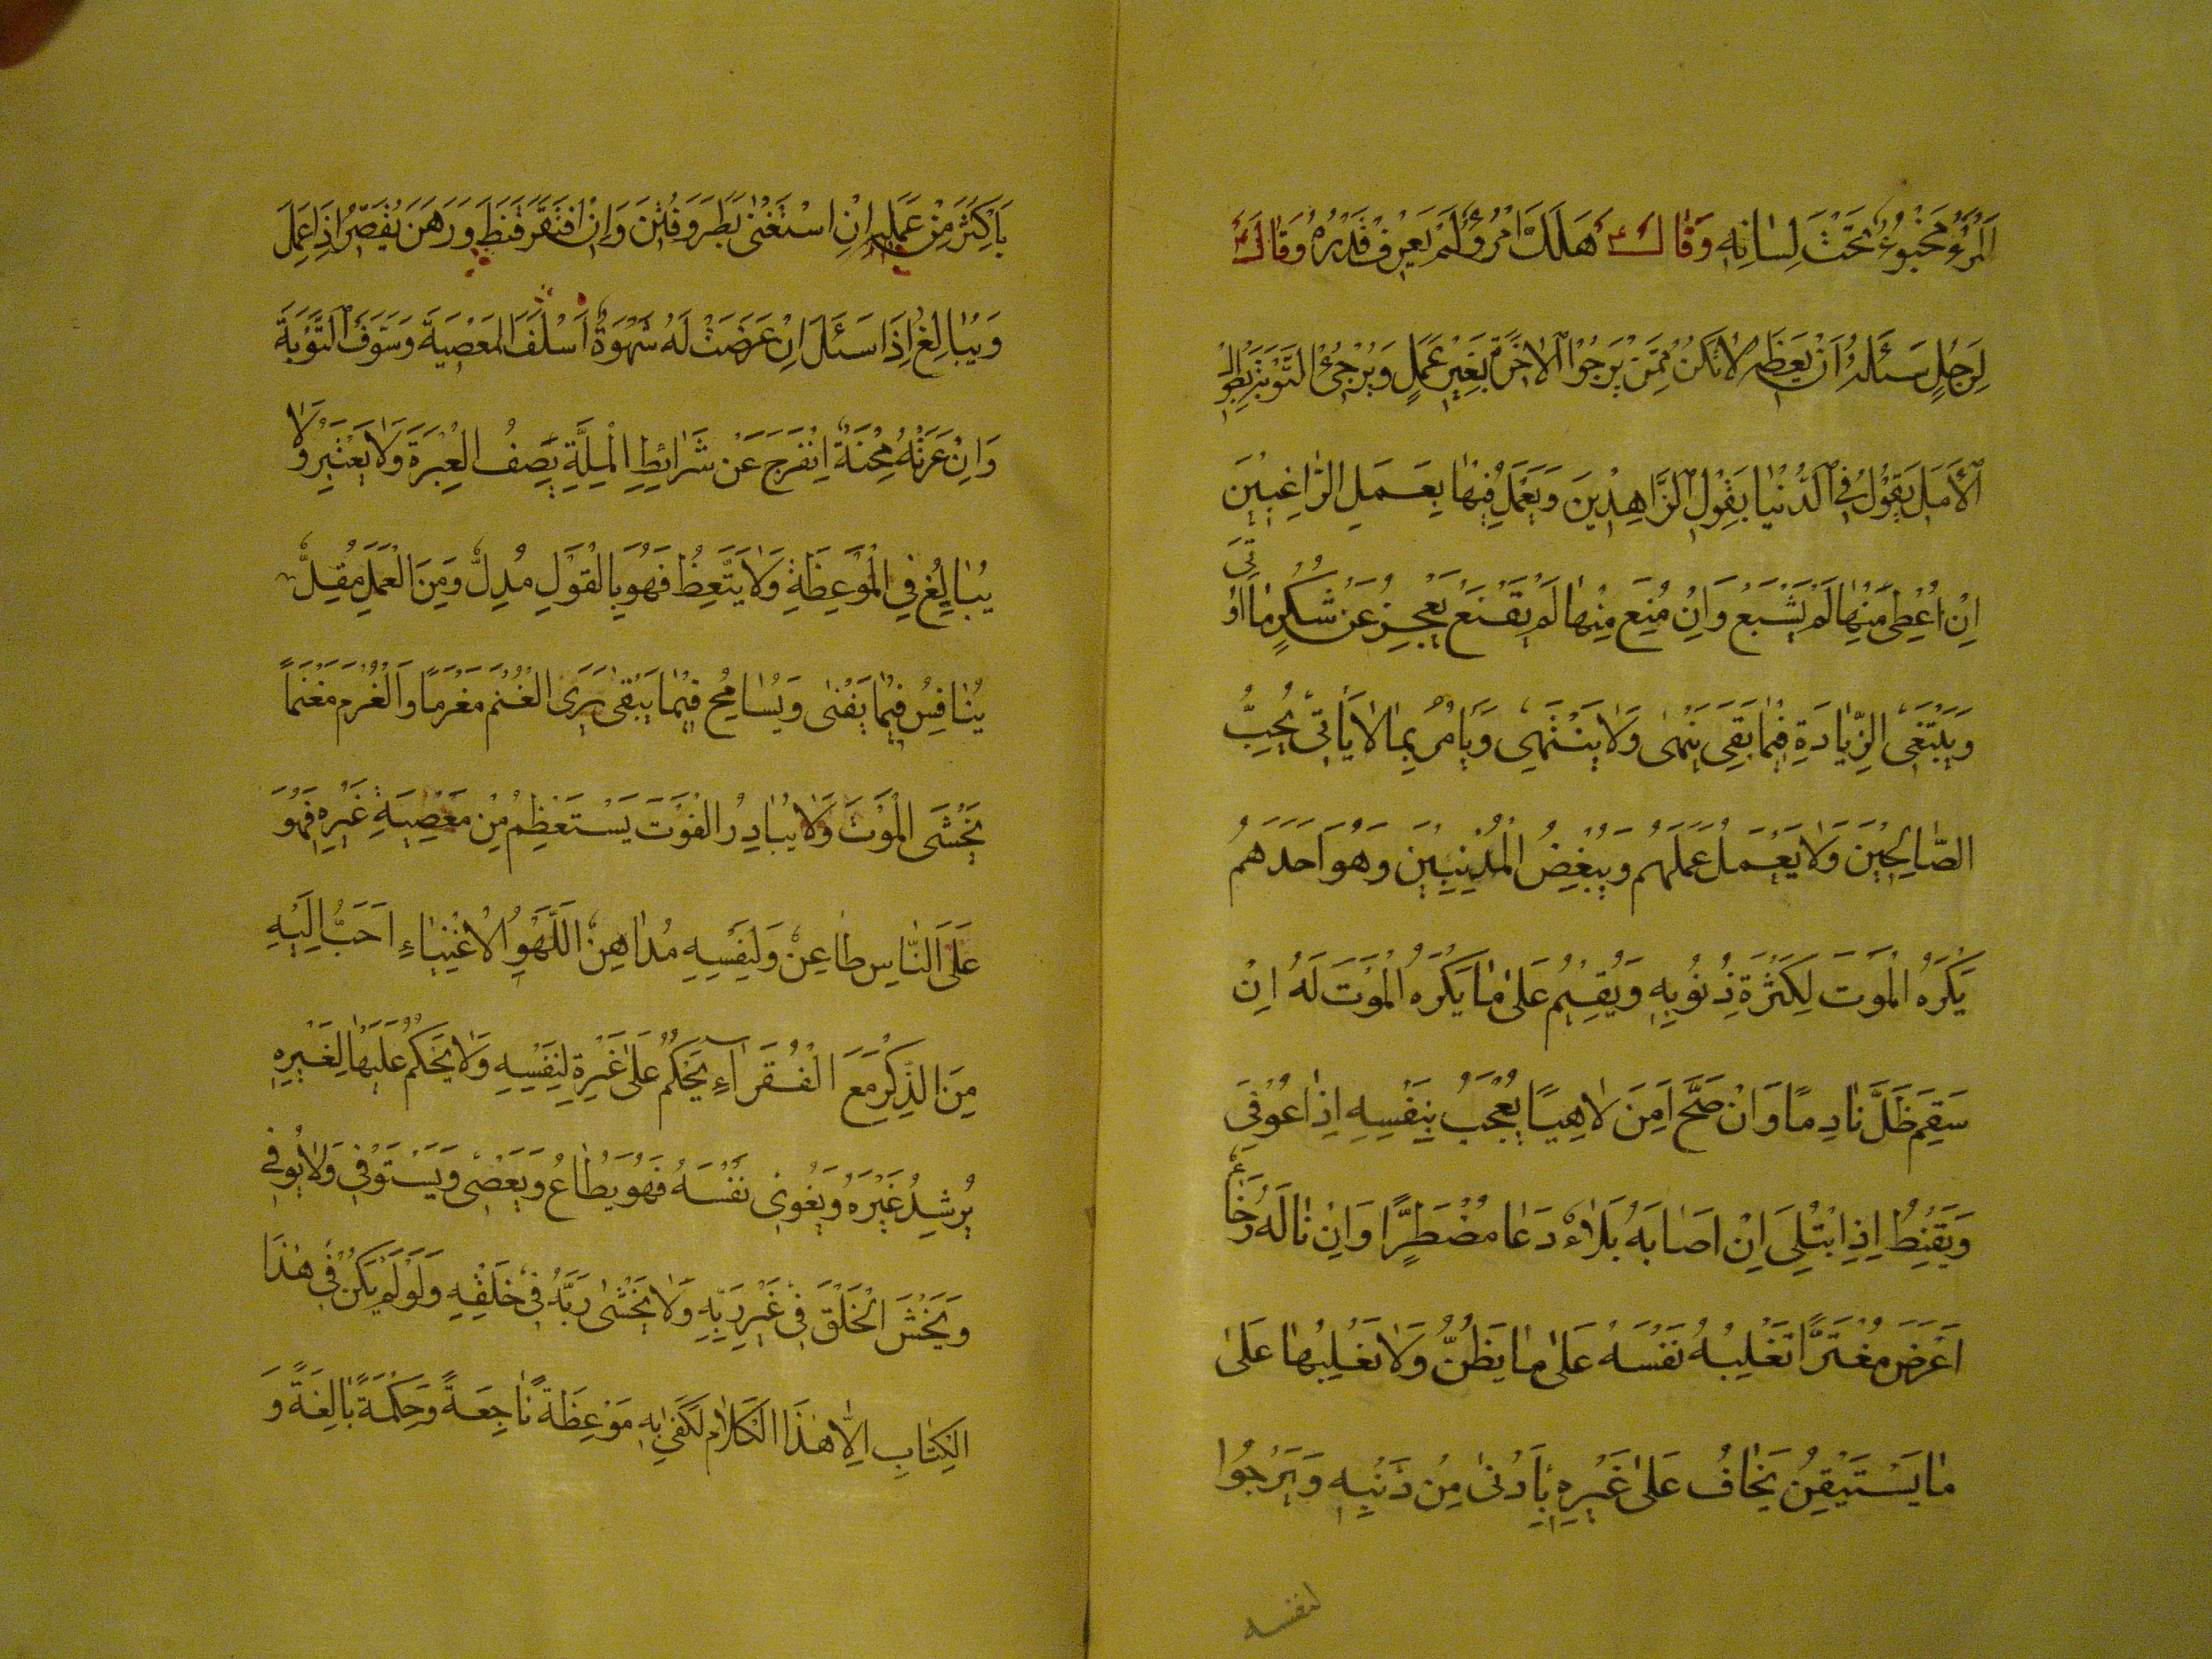 اَلْمَرْءُ مَخْبُوءٌ تَحْتَ لِسَانِهِ وَقَالَ ع هَلَكَ امْرُؤٌ لَمْ يَعْرِفْ قَدْرَهُ وَقَالَ ع
لِرَجُلٍ سَئَلَهُ اَنْ يَعِظَهُ لَا تَكُنْ مِمَّنْ يَرْجُوا الْاٰخِرَةَ بِغَيْرِ عَمَلٍ وَيُرْجِئُ التَّوْبَةَ بِطُولِ
الْاَمَلِ يَقُولُ فِي الدُّنْيَا بِقَوْلِ الزَّاهِدِينَ وَيَعْمَلُ فِيهَا بِعَمَلِ الرَّاغِبِينَ
اِنْ اُعْطِىَ مِنْهَا لَمْ يَشْبَعْ وَاِنْ مُنِعَ مِنْهَا لَمْ يَقْنَعْ يَعْجِزُ عَنْ شُكْرِ مَا اُوتِىَ
وَيَبْتَغِى الزِّيَادَةِ فِيمَا بَقِىَ يَنْهٰى وَلَا يَنْتَهِى وَيَأْمُرُ بِمَا لَا يَأْتِى يُحِبُّ
الصَّالِحِينَ وَلَا يَعْمَلُ عَمَلَهُمْ وَيُبْغِضُ الْمُذْنِبِينَ وَهُوَ اَحَدُهُمْ
يَكْرَهُ الْمَوْتَ لِكَثْرَةِ ذُنُوبِهِ وَيُقِيمُ عَلٰى مَا يَكْرَهُ الْمَوْتَ لَهُ اِنْ
سَقِمَ ظَلَّ نَادِمًا وَاِنْ صَحَّ اَمِنَ لَاهِيًا يُعْجَبُ بِنَفْسِهِ اِذَا عُوفِىَ
وَيَقْنِطُ اِذَا ابْتُلِىَ اِنْ اَصَابَهُ بَلَاءٌ دَعَا مُضْطَرًّا وَاِنْ نَالَهُ رَخَاءٌ
اَعْرَضَ مُغْتَرًّا تَغْلِبُهُ نَفْسَهُ عَلٰى مَا يَظُنُّ وَلَا يَغْلِبُهَا عَلٰى
مَا يَسْتَيْقِنُ يَخَافُ عَلٰى غَيْرِهِ بِاَدْنٰى مِنْ ذَنْبِهِ وَيَرْجُوا
لنفسه
بِاَكْثَرَ مِنْ عَمَلِهِ اِنِ اسْتَغْنٰى بَطِرَ وَفُتِنَ وَاِنْ افْتَقَرَ قَنَطَ وَوَهَنَ يُقَصِّرُ اِذَا عَمِلَ
وَيُبَالِغُ اِذَا سَئَلَ اِنْ عَرَضَتْ لَهُ شَهْوَةٌ اَسْلَفَ الْمَعْصِيَةَ وَسَوَّفَ التَّوْبَةَ
وَاِنْ عَرَتْهُ مِحْنَةٌ اِنْفَرَجَ عَنْ شَرَائِطِ الْمِلَّةِ يَصِفُ الْعِبْرَةَ وَلَا يَعْتَبِرُ وَلَا
يُبَالِغُ فِي الْمَوْعِظَةِ وَلَا يَتَّعِظُ فَهُوَ بِالْقَوْلِ مُدِلٌّ وَمِنَ الْعَمَلِ مُقِلٌّ
يُنَافِسُ فِيمَا يَفْنٰى وَيُسَامِحُ فِيمَا يَبْقٰى يَرَى الْغُنْمَ مَغْرَمًا وَالْغُرْمَ مَغْنَمًا
يَخْشَى الْمَوْتَ وَلَا يُبَادِرُ الْفَوْتَ يَسْتَعْظِمُ مِنْ مَعْصِيَةِ غَيْرِهِ فَهُوَ
عَلَى النَّاسِ طَاعِنٌ وَلِنَفْسِهِ مُدَاهِنٌ اَللَّهْوُ الْاَغْنِيَاءِ اَحَبُّ اِلَيْهِ
مِنَ الذِّكْرِ مَعَ الْفُقَرَاءِ يَحْكُمُ عَلٰى غَيْرِهِ لِنَفْسِهِ وَلَا يَحْكُمُ عَلَيْهَا لِغَيْرِهِ
يُرْشِدُ غَيْرَهُ وَيَغْوِى نَفْسَهُ فَهُوَ يُطَاعُ وَيَعْصِى وَيَسْتَوْفِى وَلَا يُوفِى
وَيَخْشَ الْخَلْقَ فِى غَيْرِ رَبِّهِ وَلَا يَخْشٰى رَبَّهُ فِى خَلْقِهِ وَلَوْ لَمْ يَكُنْ فِى هٰذَا
الْكِتَابِ اِلَّا هٰذَا الْكَلَامُ لَكَفٰى بِهِ مَوْعِظَةً نَاجِعَةً وَحِكْمَةً بَالِغَةً وَ